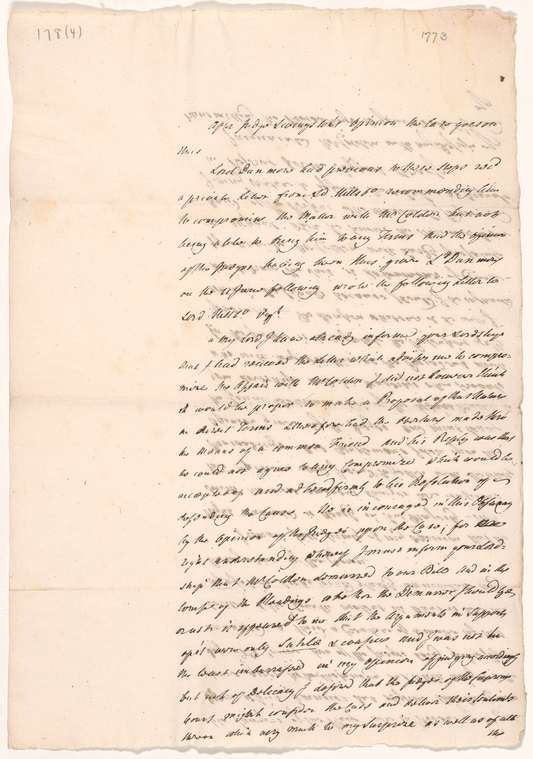 178(4)
1773
After Judge Livingston's opinion the Case goes on
thus
Lord Dunmore had previous to these steps rec'd
a private Letter from Ld. Hillsbo. recommending him
to compromise the Matter with Mr Colden but not
being able to bring him to any Terms and the opinion
of the Judges having been thus given Ld Dunmore
on the 11 June following wrote the following Letter to
Lord Hillsbo. Vizt.
"My Lord I have already informed your Lordship
that I had received the Letter which advises me to compro-
mise the Affair with Mr Colden I did not however think
it would be proper to make a Proposal of that Nature
in direct Terms I therefore had the overture made thro
the Means of a common Friend and his Reply was that
he could not agree to any Compromise which would be
accepted of and adhered firmly to his Resolution of
defending the Cause. He is incouraged in this Obstinacy
by the Opinion of the Judges upon the Case; for the
right understanding whereof I must inform your Lord-
ship that Mr Colden demurred to our Bill and in the
course of the Pleadings whether the Demurrer should be
or not it appeared to me that the Arguments in Support
of it were only Subtile Evasions and I was not in
the least embarrassed in my opinion of judging accordingly
but out of Delicacy I desired that the Judges of the Supreme
Court might consider the Case and deliver their Sentiments
thereon which very much to my Surprise as well as of all
the